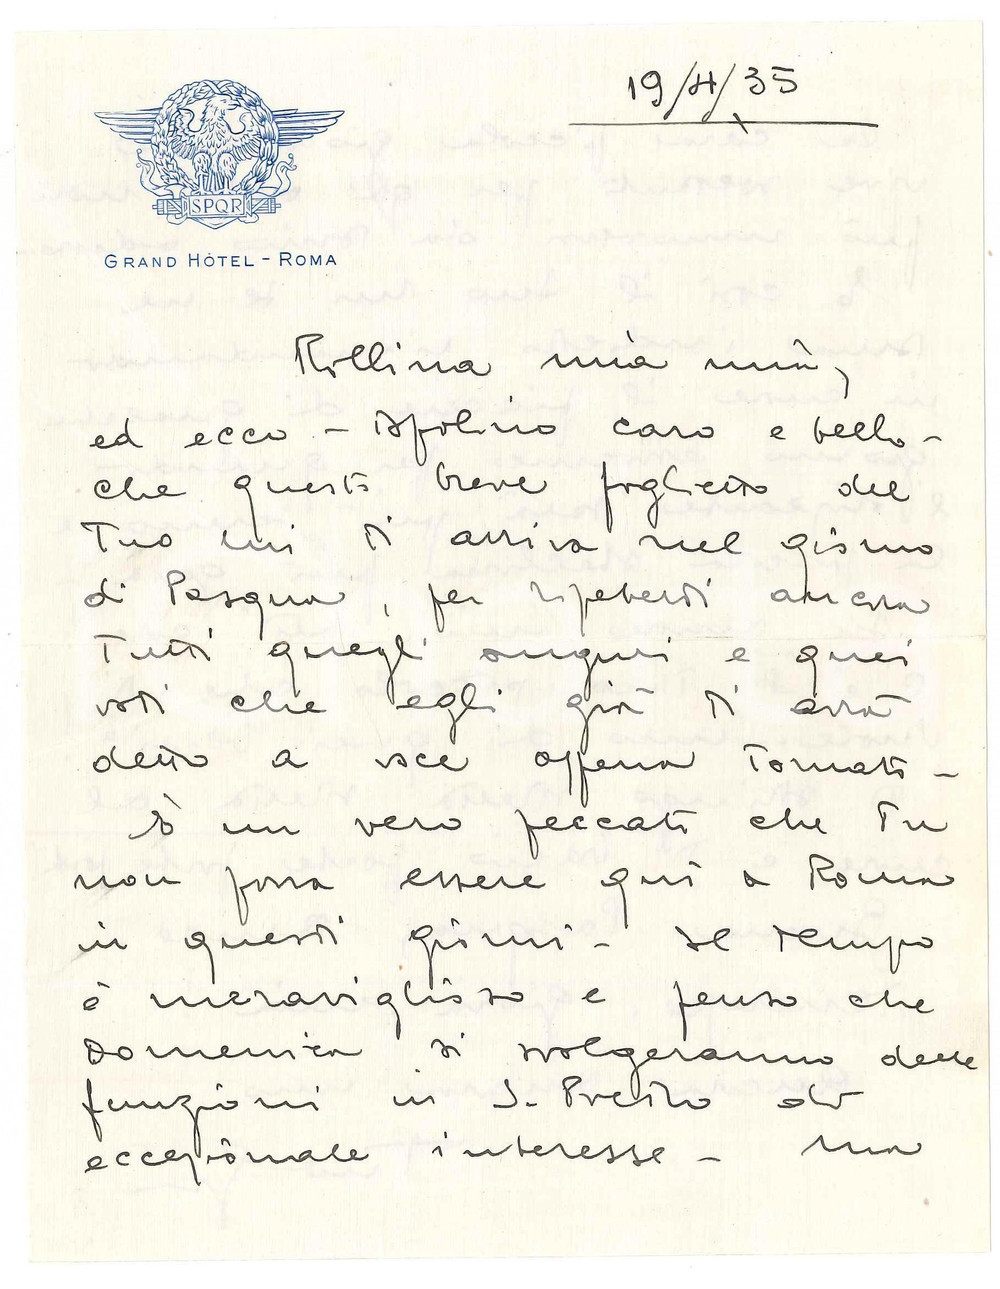 19/4/35
SPQR
GRAND HÔTEL - ROMA
Rollina mia mia,
ed ecco - Apolino caro e bello -
che questo breve foglietto del
Tuo lui Ti arriva nel giorno
di Pasqua, per ripeterti ancora
Tutti quegli auguri e quei
voti che egli già Ti avrà
detto a voce appena Tornato -
È un vero peccato che Tu
non possa essere qui a Roma
in questi giorni - Il tempo
è meraviglioso e penso che
Domenica si svolgeranno delle
funzioni in S. Pietro di
eccezionale interesse - Ma